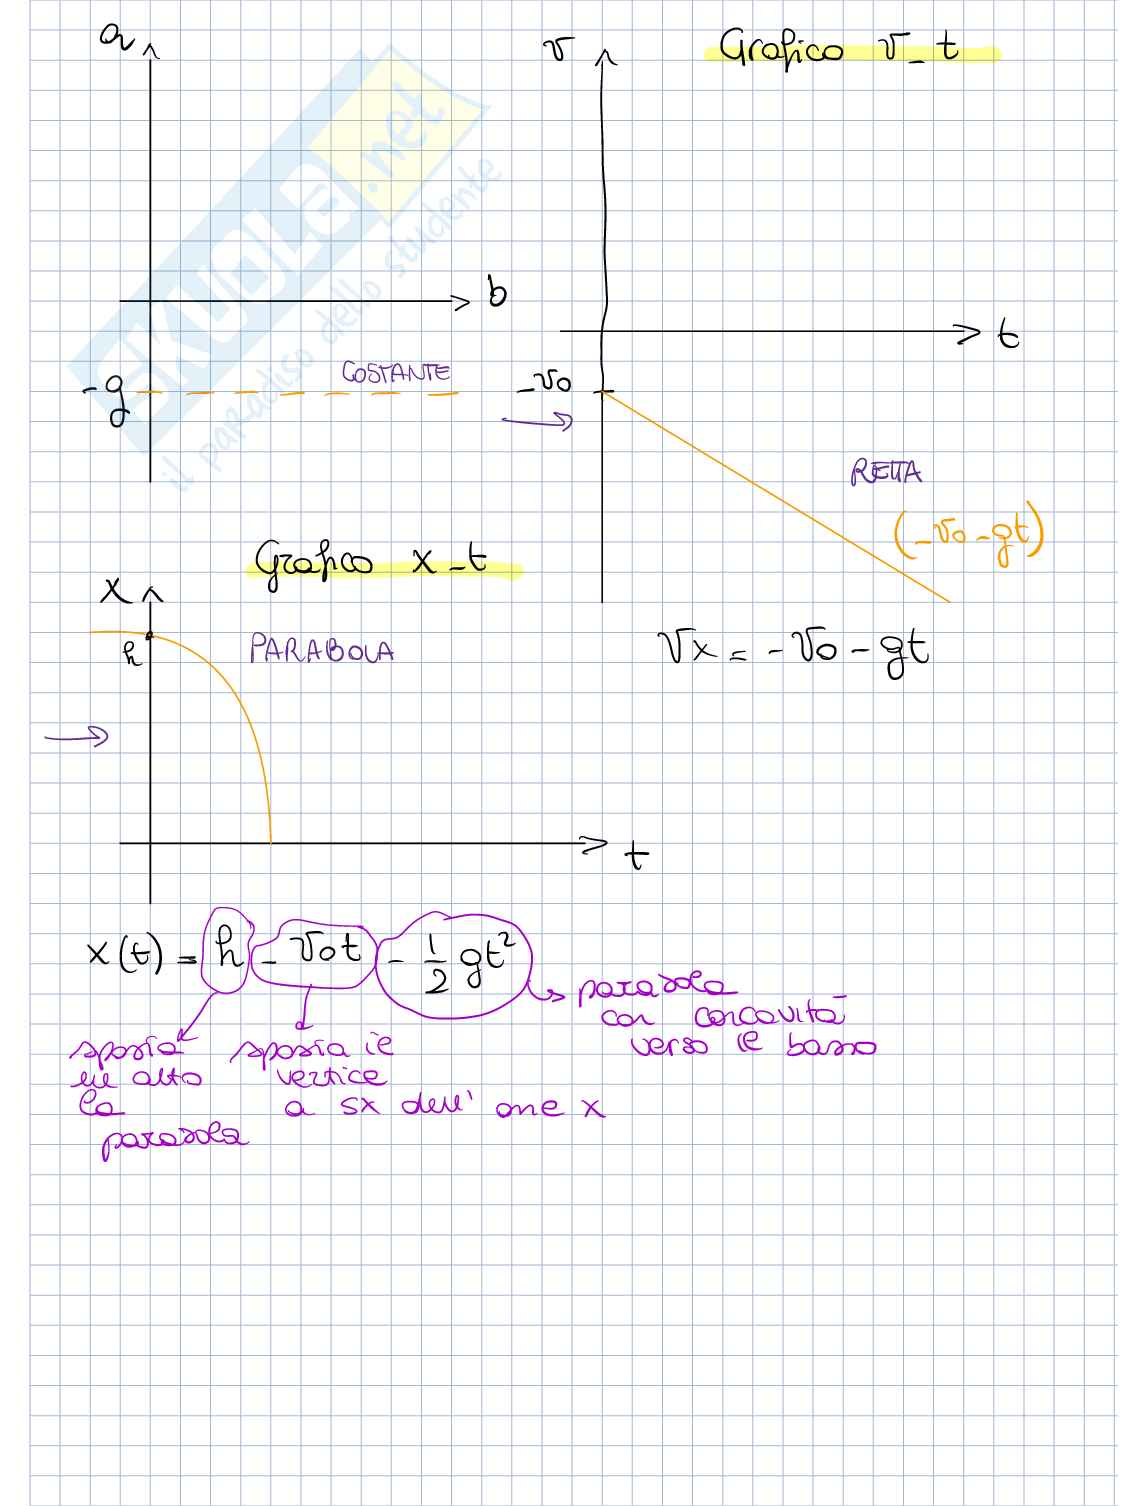 a
v
Grafico v_t
b
t
-g
COSTANTE
-v0
RETTA
(-v0-gt)
Grafico x_t
x
h
PARABOLA
vx = -v0 - gt
t
x(t) = h - v0t - 1/2 gt²
parabola
con concavità
verso il basso
sposta
in alto
la
parabola
sposta il
vertice
a sx dell' asse x
SKUOLA.net
il paradiso dello studente